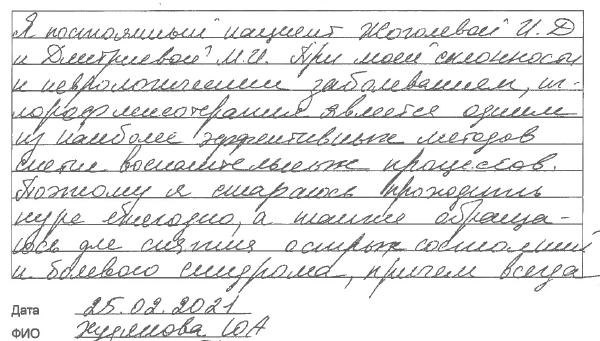 Я постоянный пациент Жоголевой И. Д
и Дмитриевой М.И. При моей склонности
к неврологическим заболеваниям, иг-
лорефлексотерапия является одним
из наиболее эффективных методов
снятия воспалительных процессов.
Поэтому я стараюсь проходить
курс ежегодно, а также обраща-
юсь для снятия острых состояний
и болевого синдрома, причем всегда
Дата 25.02.2021
ФИО Худякова ЮА